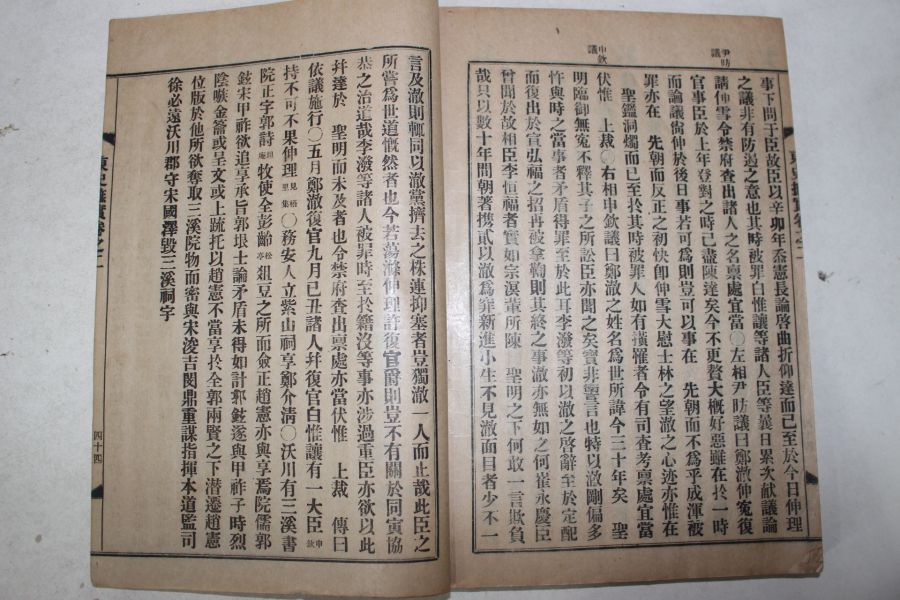 尹昉議
申欽議
事下問于臣故臣以辛卯年忝憲長論啓曲折仰達而已至於今日伸理
之議非有防遏之意也其時被罪白惟讓等諸人臣等曩日累次獻議論
請伸雪令禁府查出諸人之名稟處宜當〇左相尹昉議曰鄭澈伸寃復
官事臣於上年登對之時已盡陳達矣今不更贅大槪好惡雖在於一時
而論議當伸於後日事若可為則豈可以事在 先朝而不為乎成渾被
罪亦在 先朝而反正之初快卽伸雪大慰士林之望澈之心迹亦惟在
聖鑑洞燭而已至於其時被罪人如有橫罹者令有司查考稟處宜當
伏惟 上裁〇右相申欽議曰鄭澈之姓名為世所諱今三十年矣 聖
明臨御無寃不釋其子之所訟臣亦聞之矣實非誣言也特以澈剛偏多
忤與時之當事者矛盾得罪至於此耳李潑等初以澈之啓辭至於定配
而復出於宣弘福之招再被拿鞫則其終之事澈亦無如之何崔永慶臣
曾聞於故相臣李恒福者實如宗溟輩所陳 聖明之下何敢一言欺負
哉只以數十年間朝著携貳以澈為穽新進小生不見澈面目者少不一
言及澈則輒同以澈黨擠去之株連抑塞者豈獨澈一人而止哉此臣之
所嘗為世道慨然者也今若蕩滌伸理許復官爵則豈不有關於同寅協
恭之治道哉李潑等諸人被罪時至於籍沒等事亦涉過重臣亦欲以此
幷達於 聖明而未及者也令禁府查出稟處亦當伏惟 上裁 傳曰
依議施行〇五月鄭澈復官九月已丑諸人幷復官白惟讓有一大臣申欽
持不可不果伸理見梧里集〇務安人立紫山祠享鄭介清〇沃川有三溪書
院正字郭詩坦庵牧使全彭齡松亭俎豆之所而僉正趙憲亦與享焉院儒郭
鉉宋甲祚欲追享承旨郭垠士論矛盾未得如計郭鉉遂與甲祚子時烈
陰嗾金䈣或呈文或上疏托以趙憲不當享於全郭兩賢之下潛遷趙憲
位版於他所欲奪取三溪院物而密與宋浚吉閔鼎重謀指揮本道監司
徐必遠沃川郡守宋國澤毁三溪祠宇
東史摭實卷之二
四十四